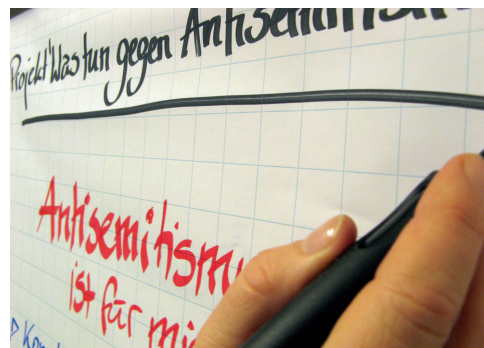 Projekt "Was tun gegen Antisemitism
Antisemitism
ist für mi